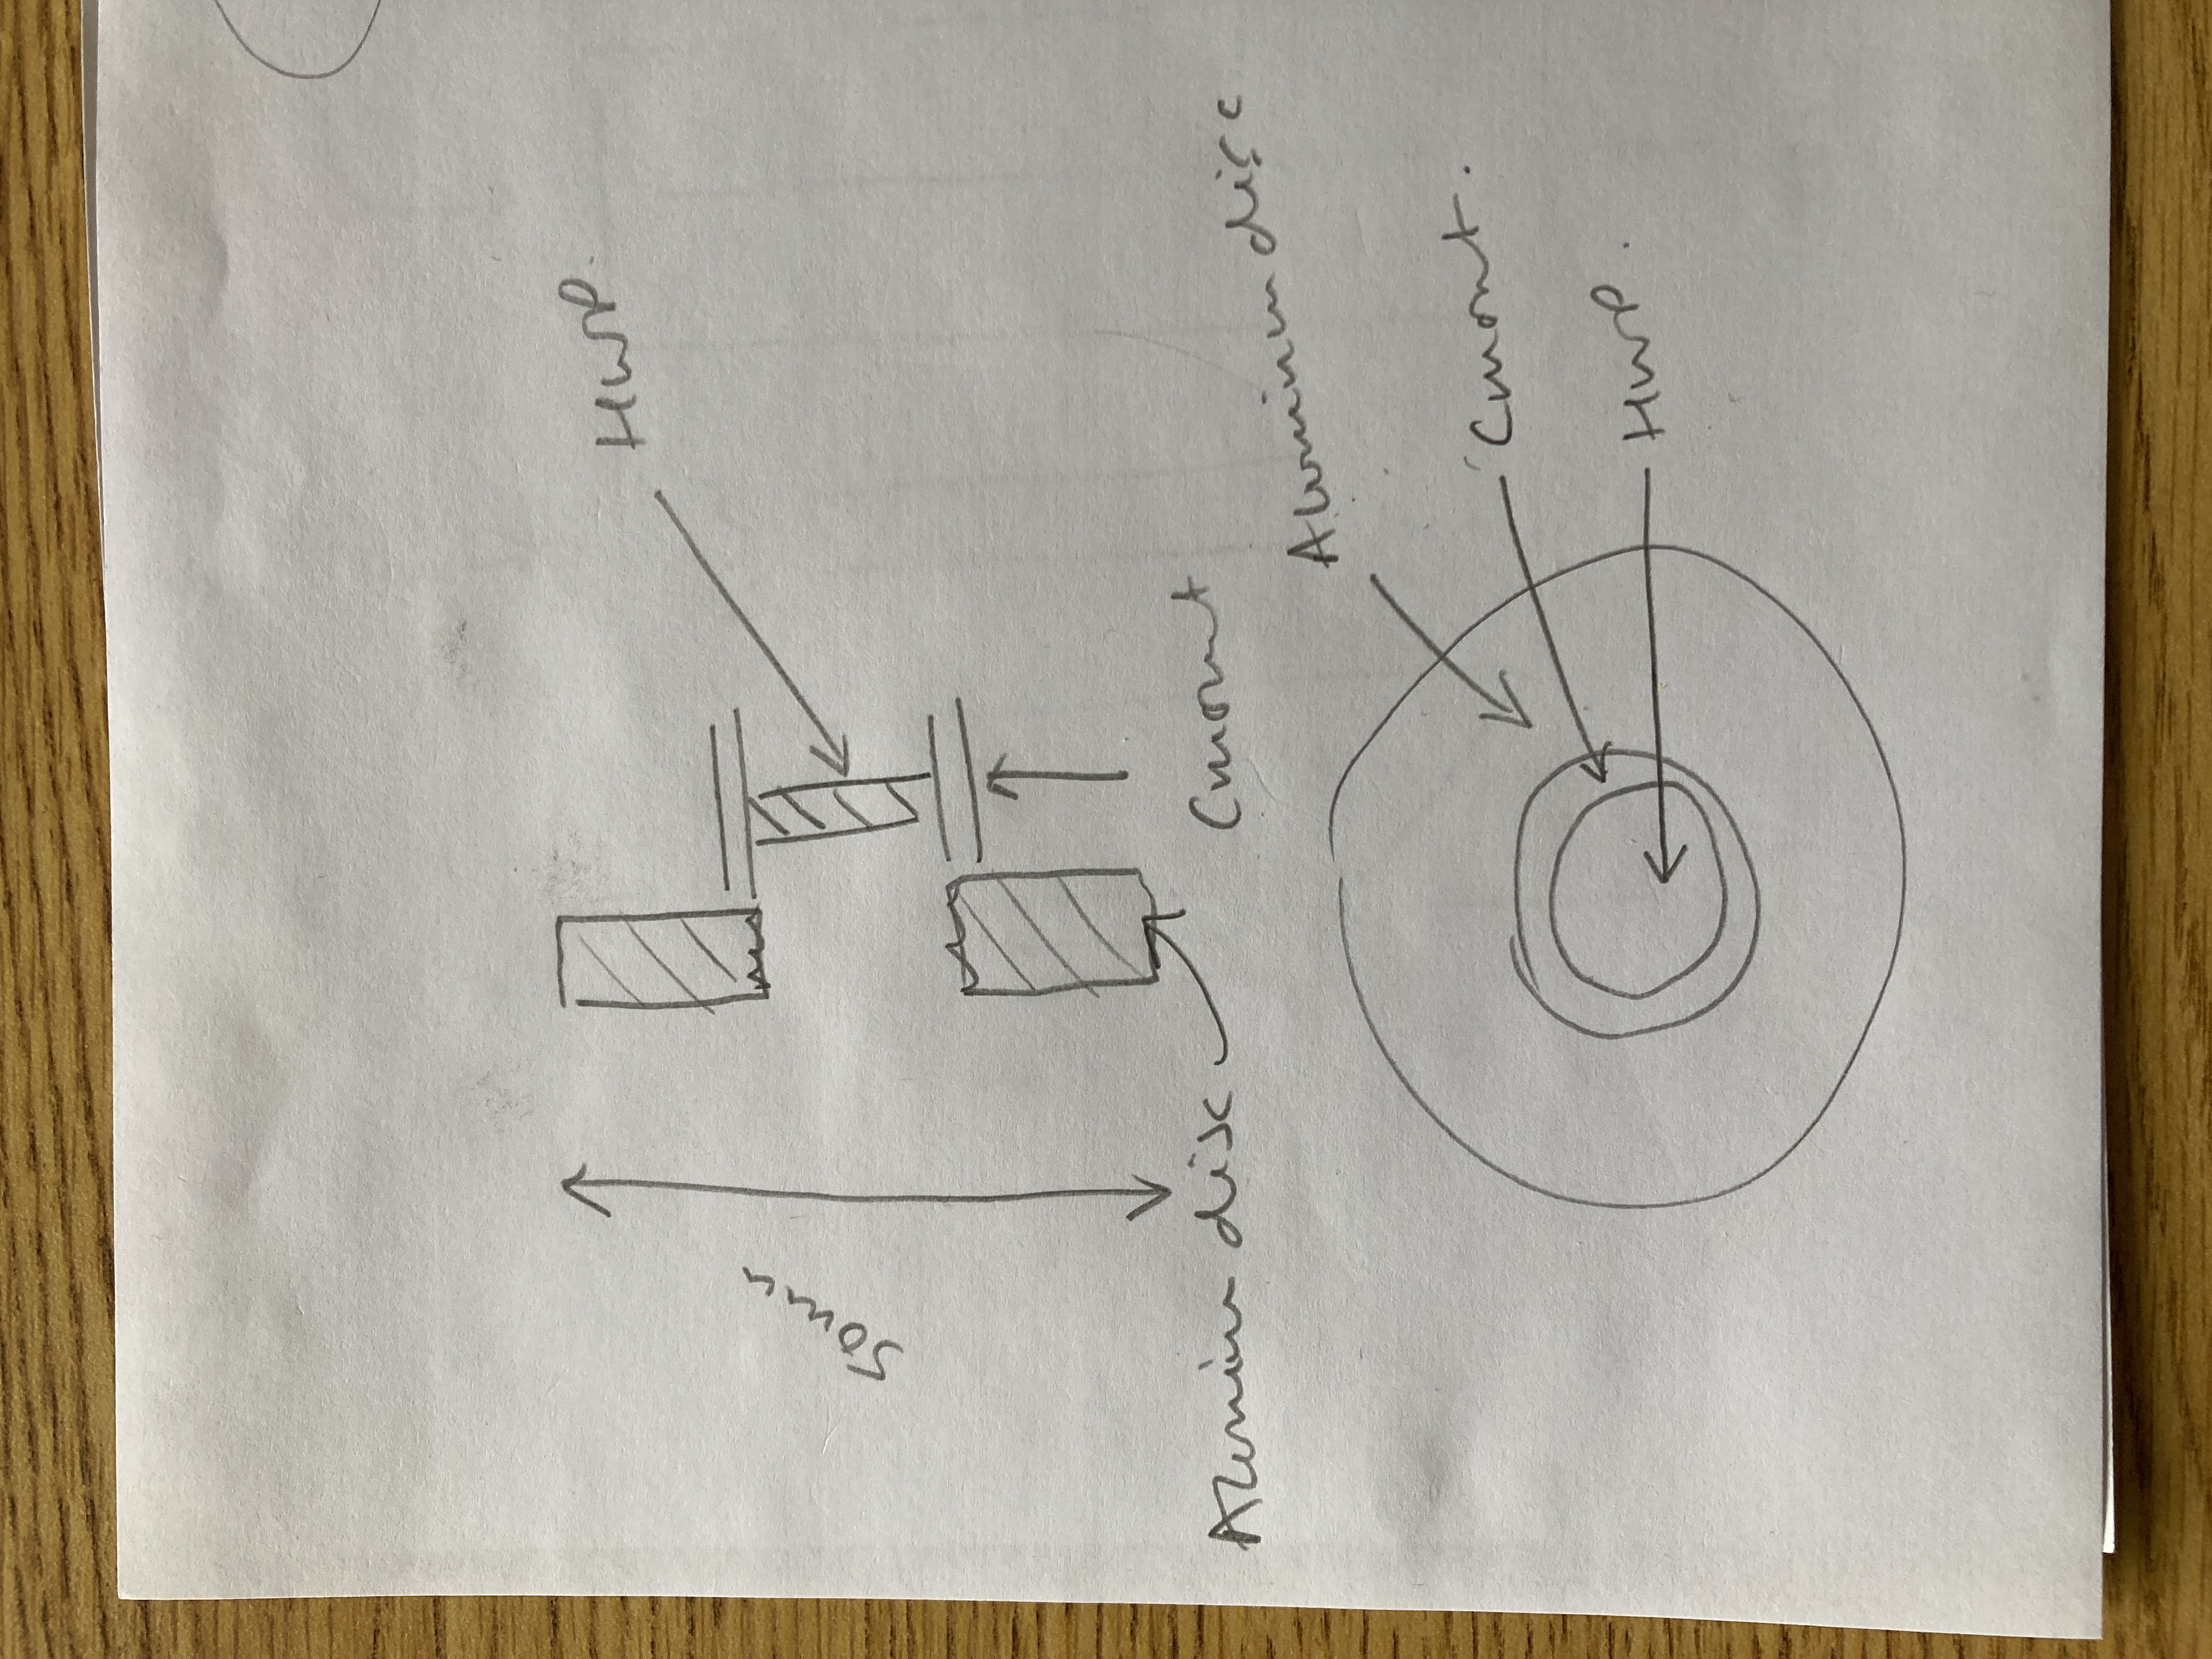 HWP.
50mm
Aluminium disc
Cmount
Aluminium disc
Cmount.
HWP.